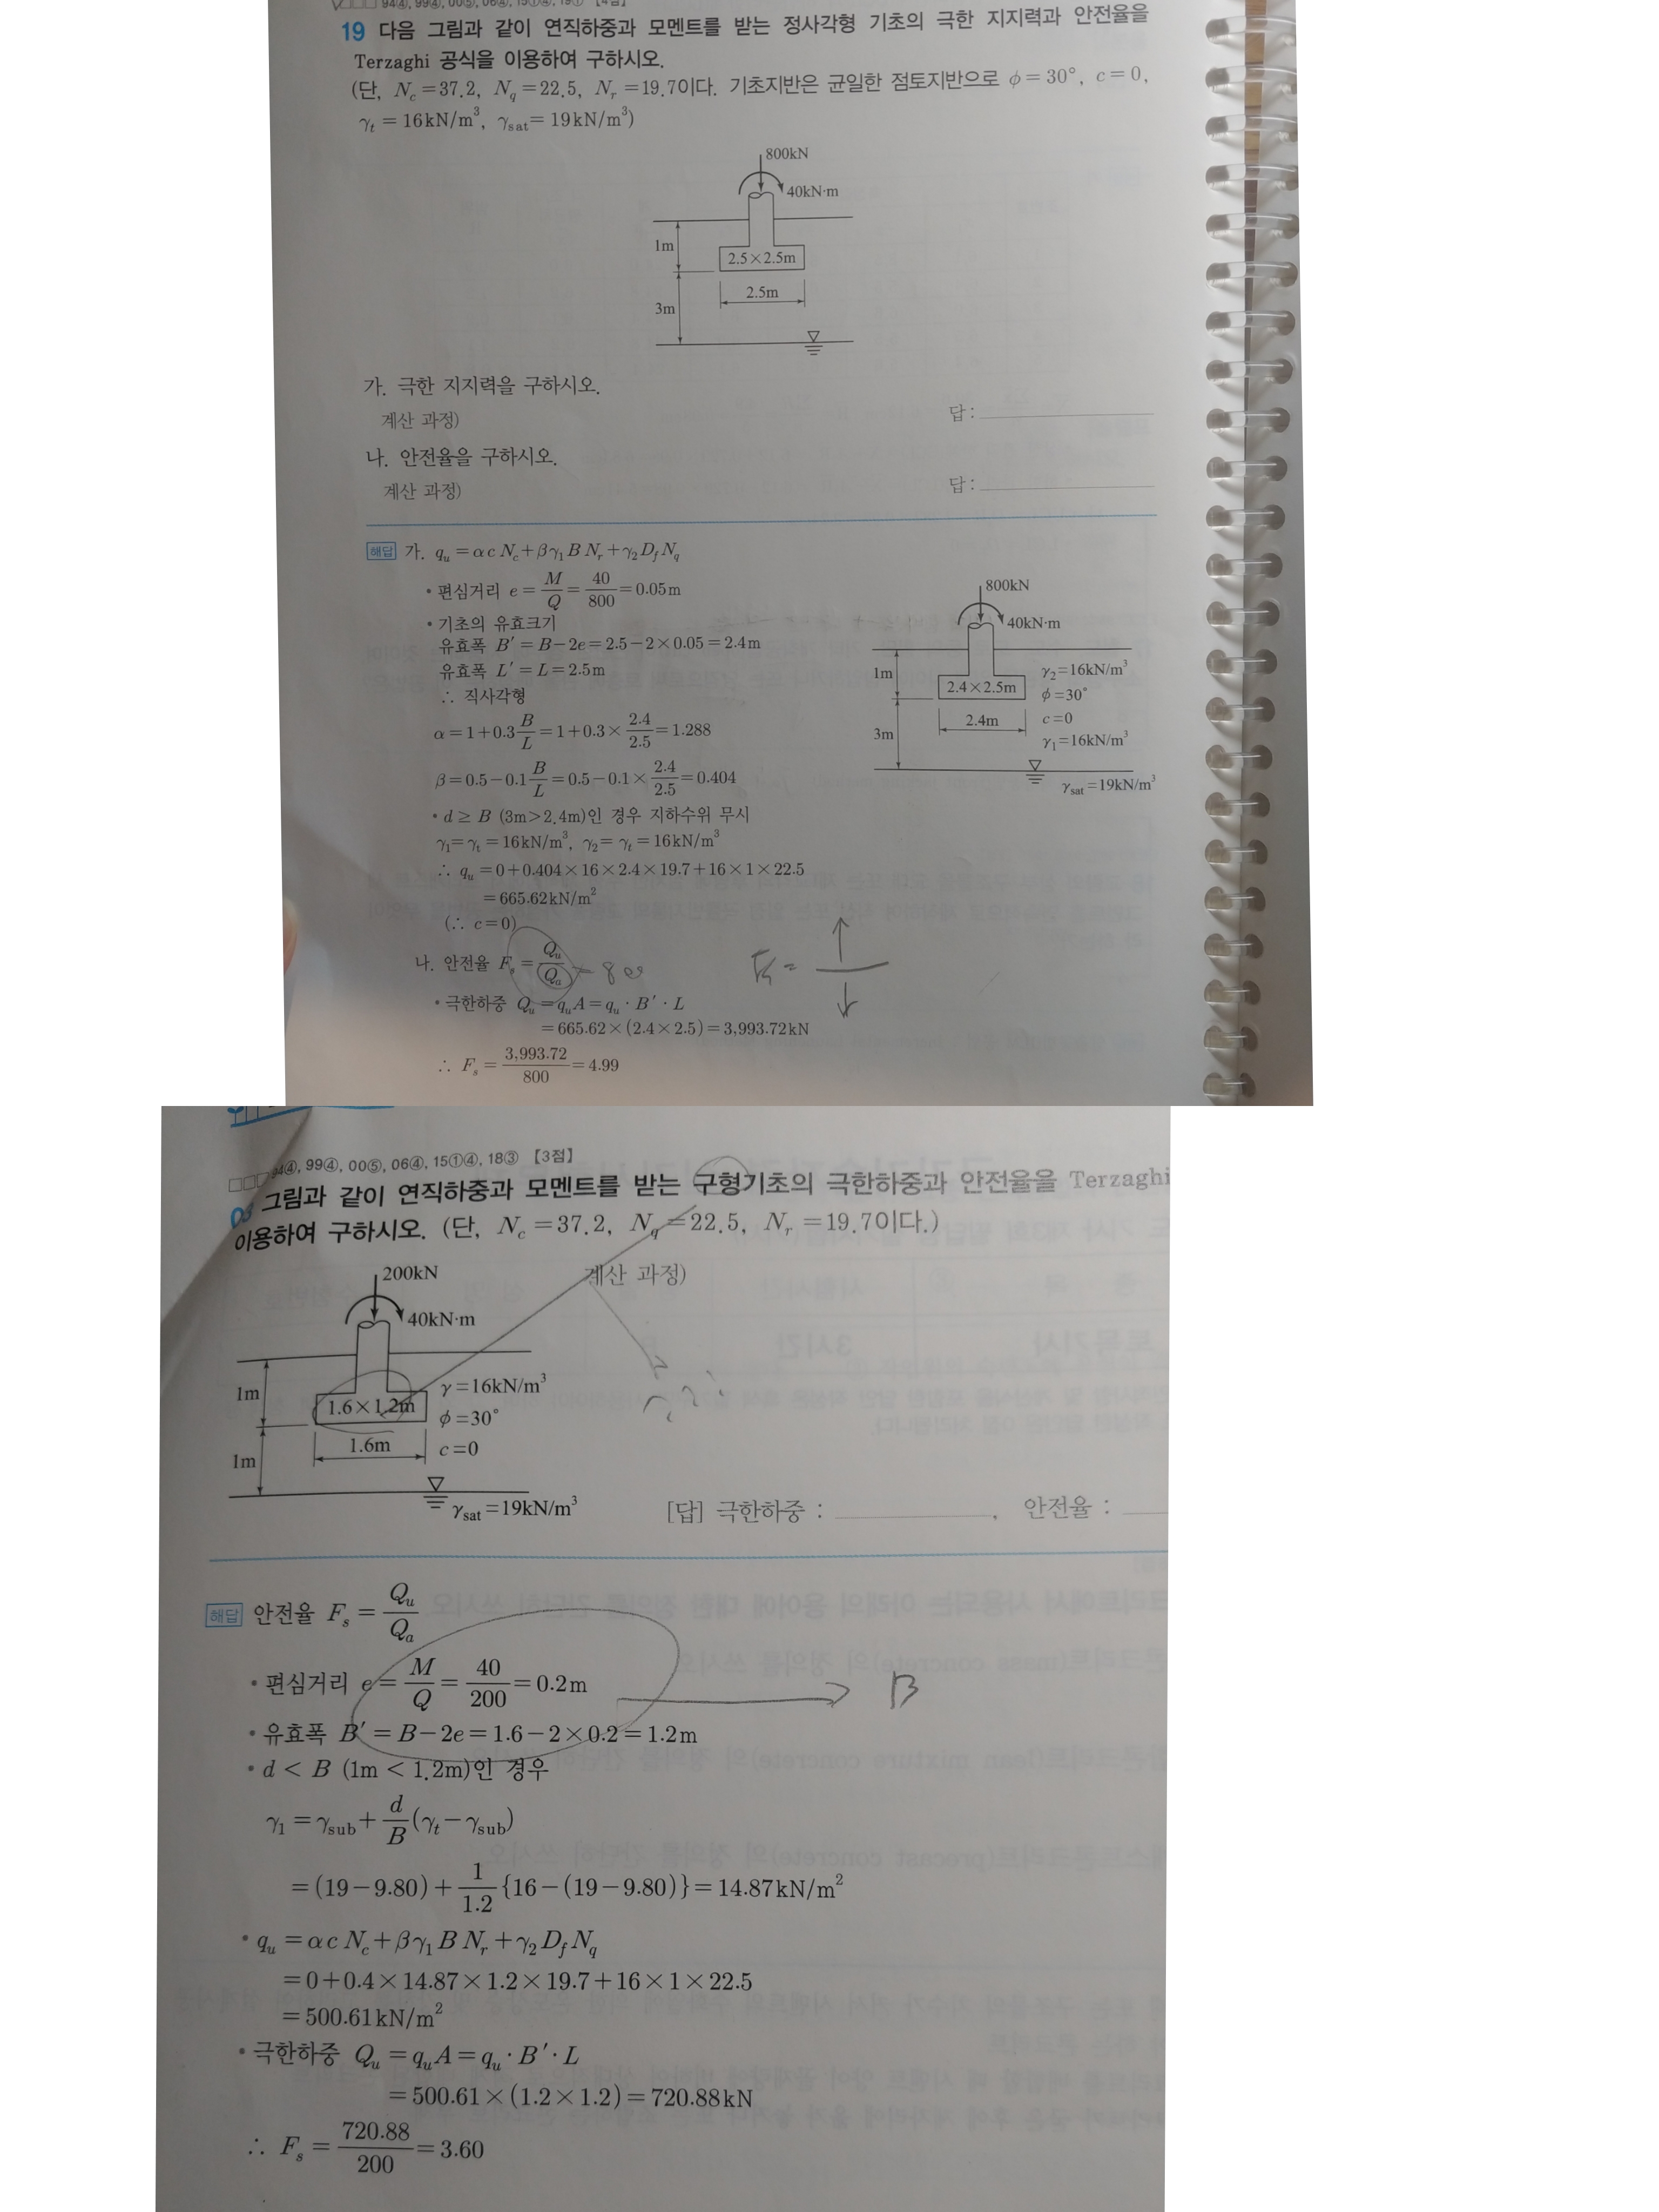 94④, 99④, 00⑤, 06④, 15①④, 19① 【4점】
19 다음 그림과 같이 연직하중과 모멘트를 받는 정사각형 기초의 극한 지지력과 안전율을
Terzaghi 공식을 이용하여 구하시오.
(단, N_c=37.2, N_q=22.5, N_r=19.7이다. 기초지반은 균일한 점토지반으로 ϕ=30°, c=0,
γ_t=16kN/m³, γ_sat=19kN/m³)
800kN
40kN·m
1m
2.5×2.5m
2.5m
3m
가. 극한 지지력을 구하시오.
계산 과정) 답:
나. 안전율을 구하시오.
계산 과정) 답:
해답 가. q_u=αcN_c+βγ₁BN_r+γ₂D_fN_q
• 편심거리 e=M/Q=40/800=0.05m
• 기초의 유효크기
유효폭 B′=B−2e=2.5−2×0.05=2.4m
유효폭 L′=L=2.5m
∴ 직사각형
α=1+0.3 B/L=1+0.3×2.4/2.5=1.288
β=0.5−0.1 B/L=0.5−0.1×2.4/2.5=0.404
• d≥B (3m>2.4m)인 경우 지하수위 무시
γ₁=γ_t=16kN/m³, γ₂=γ_t=16kN/m³
∴ q_u=0+0.404×16×2.4×19.7+16×1×22.5
=665.62kN/m²
(∴ c=0)
800kN
40kN·m
1m
γ₂=16kN/m³
2.4×2.5m
ϕ=30°
2.4m
c=0
3m
γ₁=16kN/m³
γ_sat=19kN/m³
나. 안전율 F_s=Q_u/Q_a = 800
F_s=
• 극한하중 Q_u=q_uA=q_u·B′·L
=665.62×(2.4×2.5)=3,993.72kN
∴ F_s=3,993.72/800=4.99
94④, 99④, 00⑤, 06④, 15①④, 18③ 【3점】
그림과 같이 연직하중과 모멘트를 받는 구형기초의 극한하중과 안전율을 Terzaghi
이용하여 구하시오. (단, N_c=37.2, N_q=22.5, N_r=19.7이다.)
200kN
계산 과정)
40kN·m
1m
γ=16kN/m³
1.6×1.2m
ϕ=30°
1.6m
c=0
1m
γ_sat=19kN/m³
[답] 극한하중 : , 안전율 :
해답 안전율 F_s=Q_u/Q_a
• 편심거리 e=M/Q=40/200=0.2m
B
• 유효폭 B′=B−2e=1.6−2×0.2=1.2m
• d<B (1m<1.2m)인 경우
γ₁=γ_sub+d/B(γ_t−γ_sub)
=(19−9.80)+1/1.2{16−(19−9.80)}=14.87kN/m²
• q_u=αcN_c+βγ₁BN_r+γ₂D_fN_q
=0+0.4×14.87×1.2×19.7+16×1×22.5
=500.61kN/m²
• 극한하중 Q_u=q_uA=q_u·B′·L
=500.61×(1.2×1.2)=720.88kN
∴ F_s=720.88/200=3.60